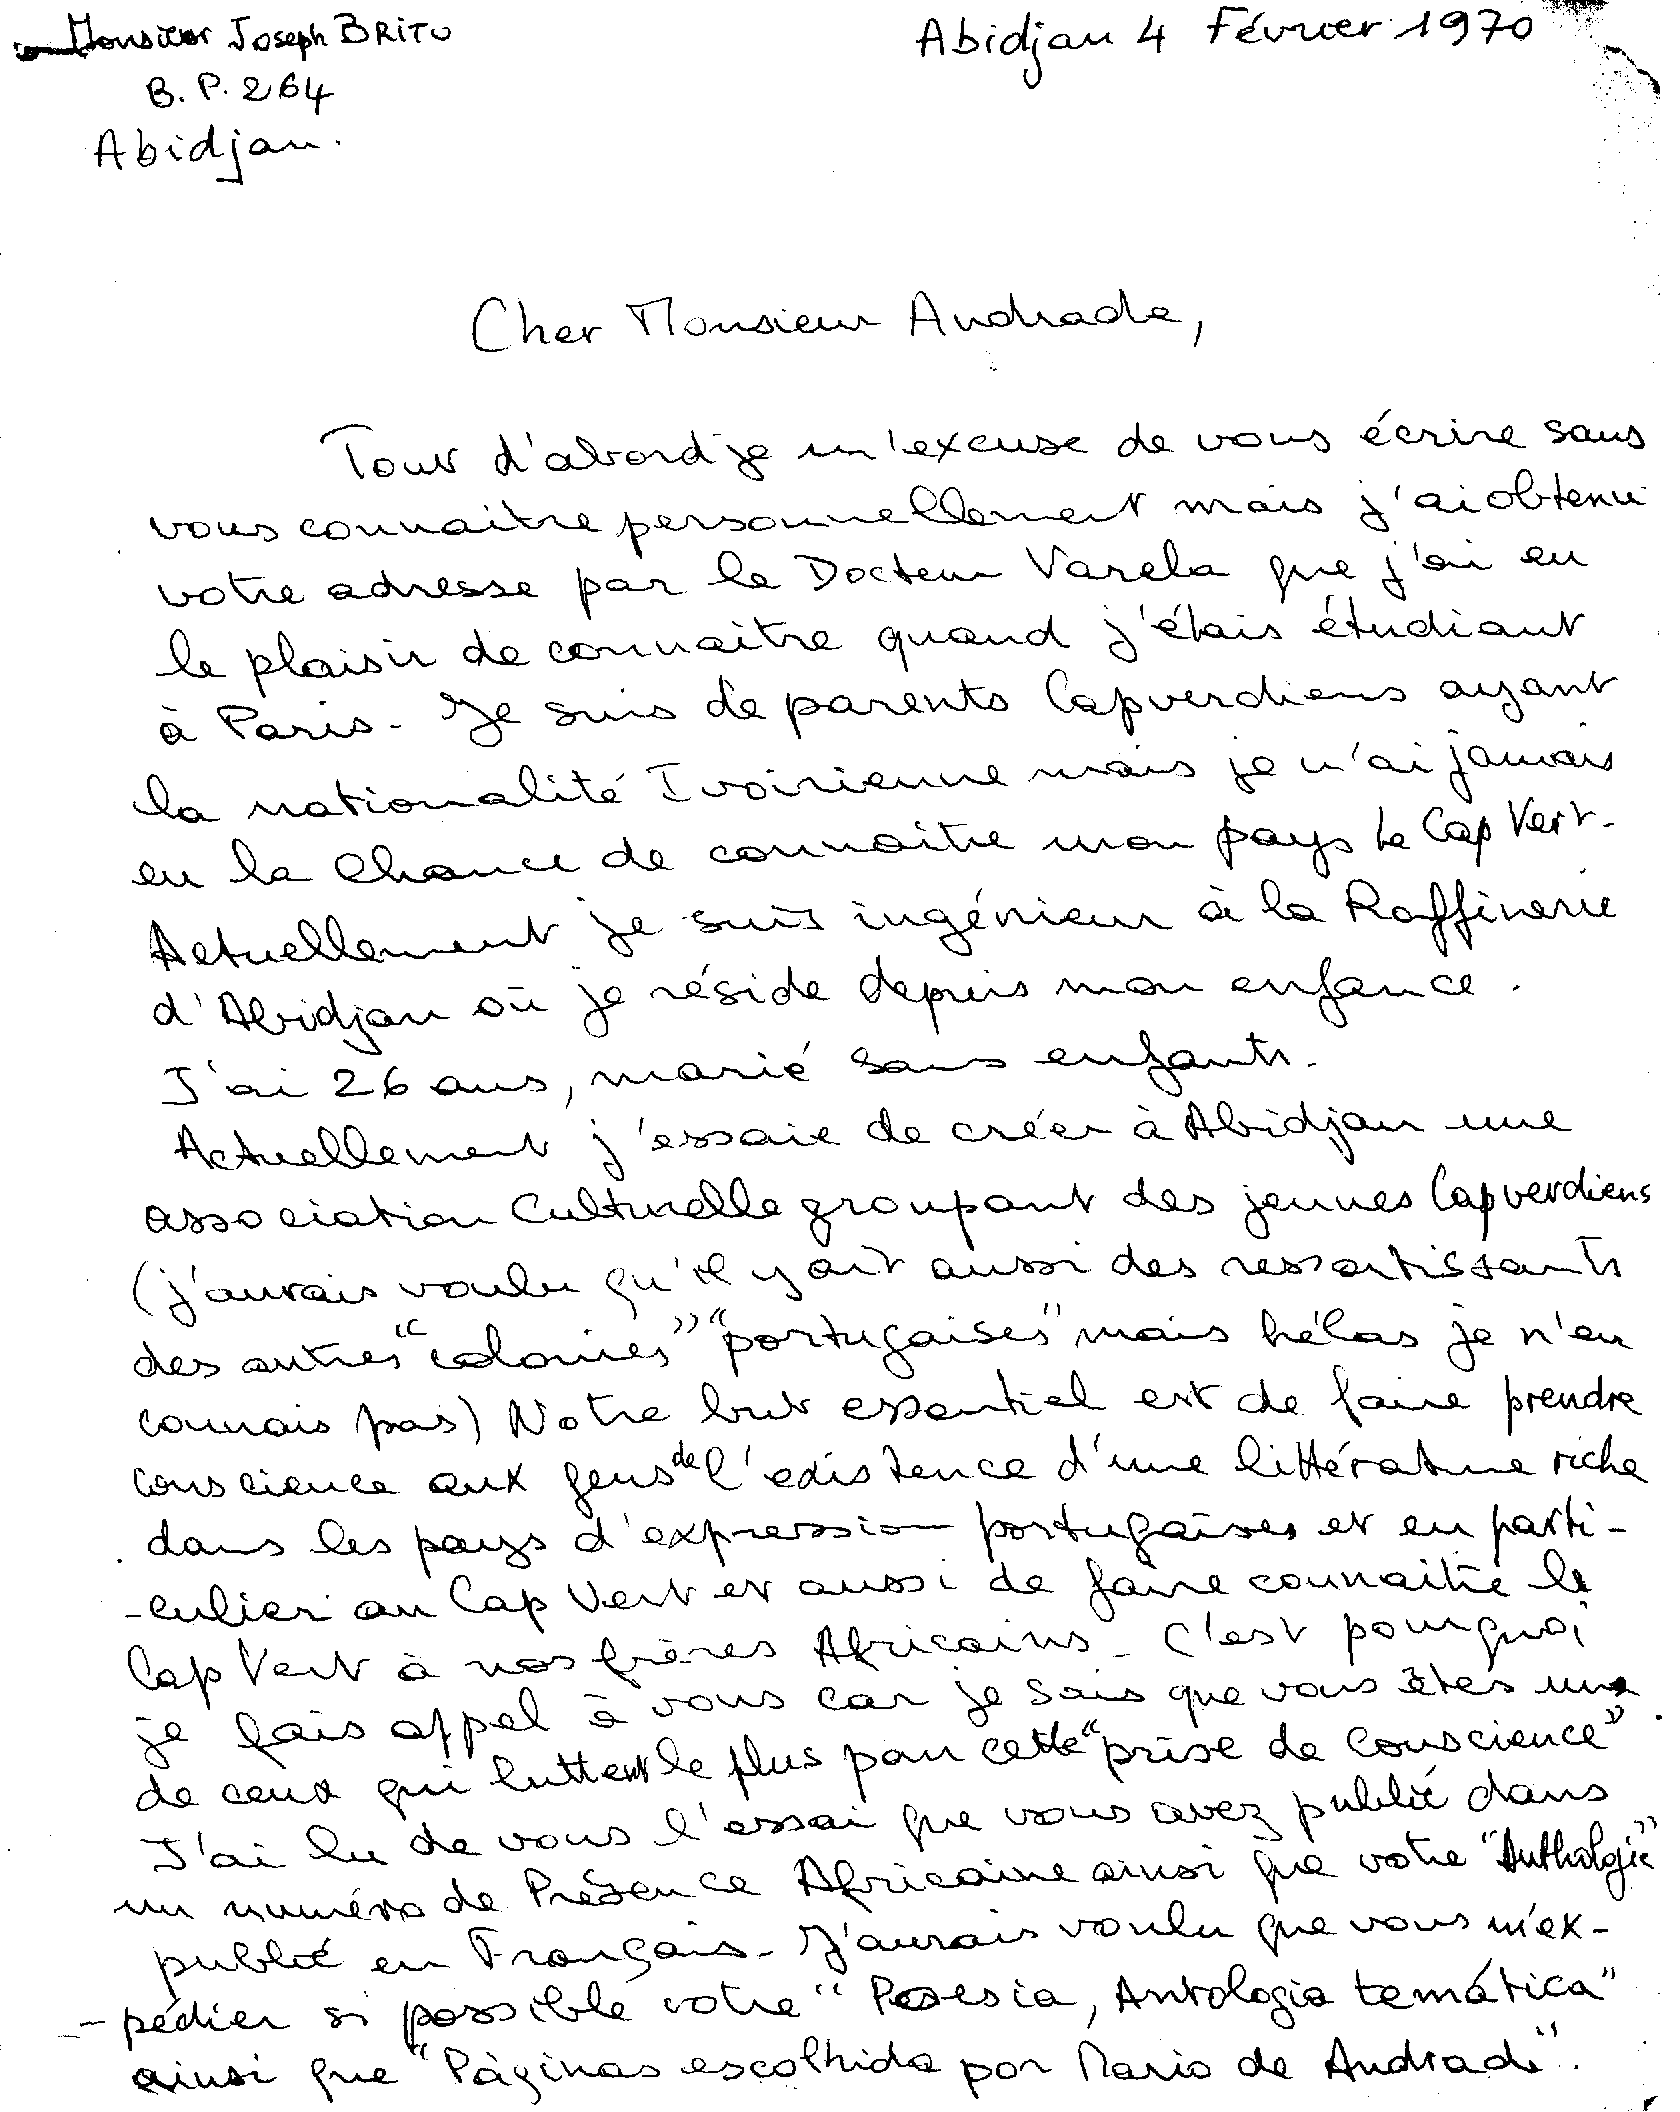 Monsieur Joseph BRITO
B.P. 264
Abidjan.
Abidjan 4 Février 1970
Cher Monsieur Andrade,
Tout d'abord je m'excuse de vous écrire sans
vous connaitre personnellement mais j'ai obtenu
votre adresse par le Docteur Varela que j'ai eu
le plaisir de connaitre quand j'étais étudiant
à Paris - Je suis de parents Capverdiens ayant
la nationalité Ivoirienne mais je n'ai jamais
eu la chance de connaitre mon pays le Cap Vert -
Actuellement je suis ingénieur à la Raffinerie
d'Abidjan où je réside depuis mon enfance.
J'ai 26 ans, marié sans enfants.
Actuellement j'essaie de créer à Abidjan une
association Culturelle groupant des jeunes Capverdiens
(j'aurais voulu qu'il y ait aussi des ressortissants
des autres "colonies" "portugaises" mais hélas je n'en
connais pas) Notre but essentiel est de faire prendre
conscience aux gens de l'existence d'une littérature riche
dans les pays d'expression portugaises et en parti-
-culier au Cap Vert et aussi de faire connaitre le
Cap Vert à nos frères Africains - C'est pourquoi
je fais appel à vous car je sais que vous êtes un
de ceux qui luttent le plus pour cette "prise de conscience"
J'ai lu de vous l'essai que vous avez publié dans
un numéro de Présence Africaine ainsi que votre "Anthologie"
publié en Français - J'aurais voulu que vous m'ex-
-pédier si possible votre "Poesia, Antologia temática"
ainsi que "Páginas escolhida por Mario de Andrade".